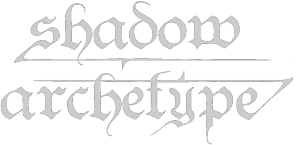 shadow
archetype